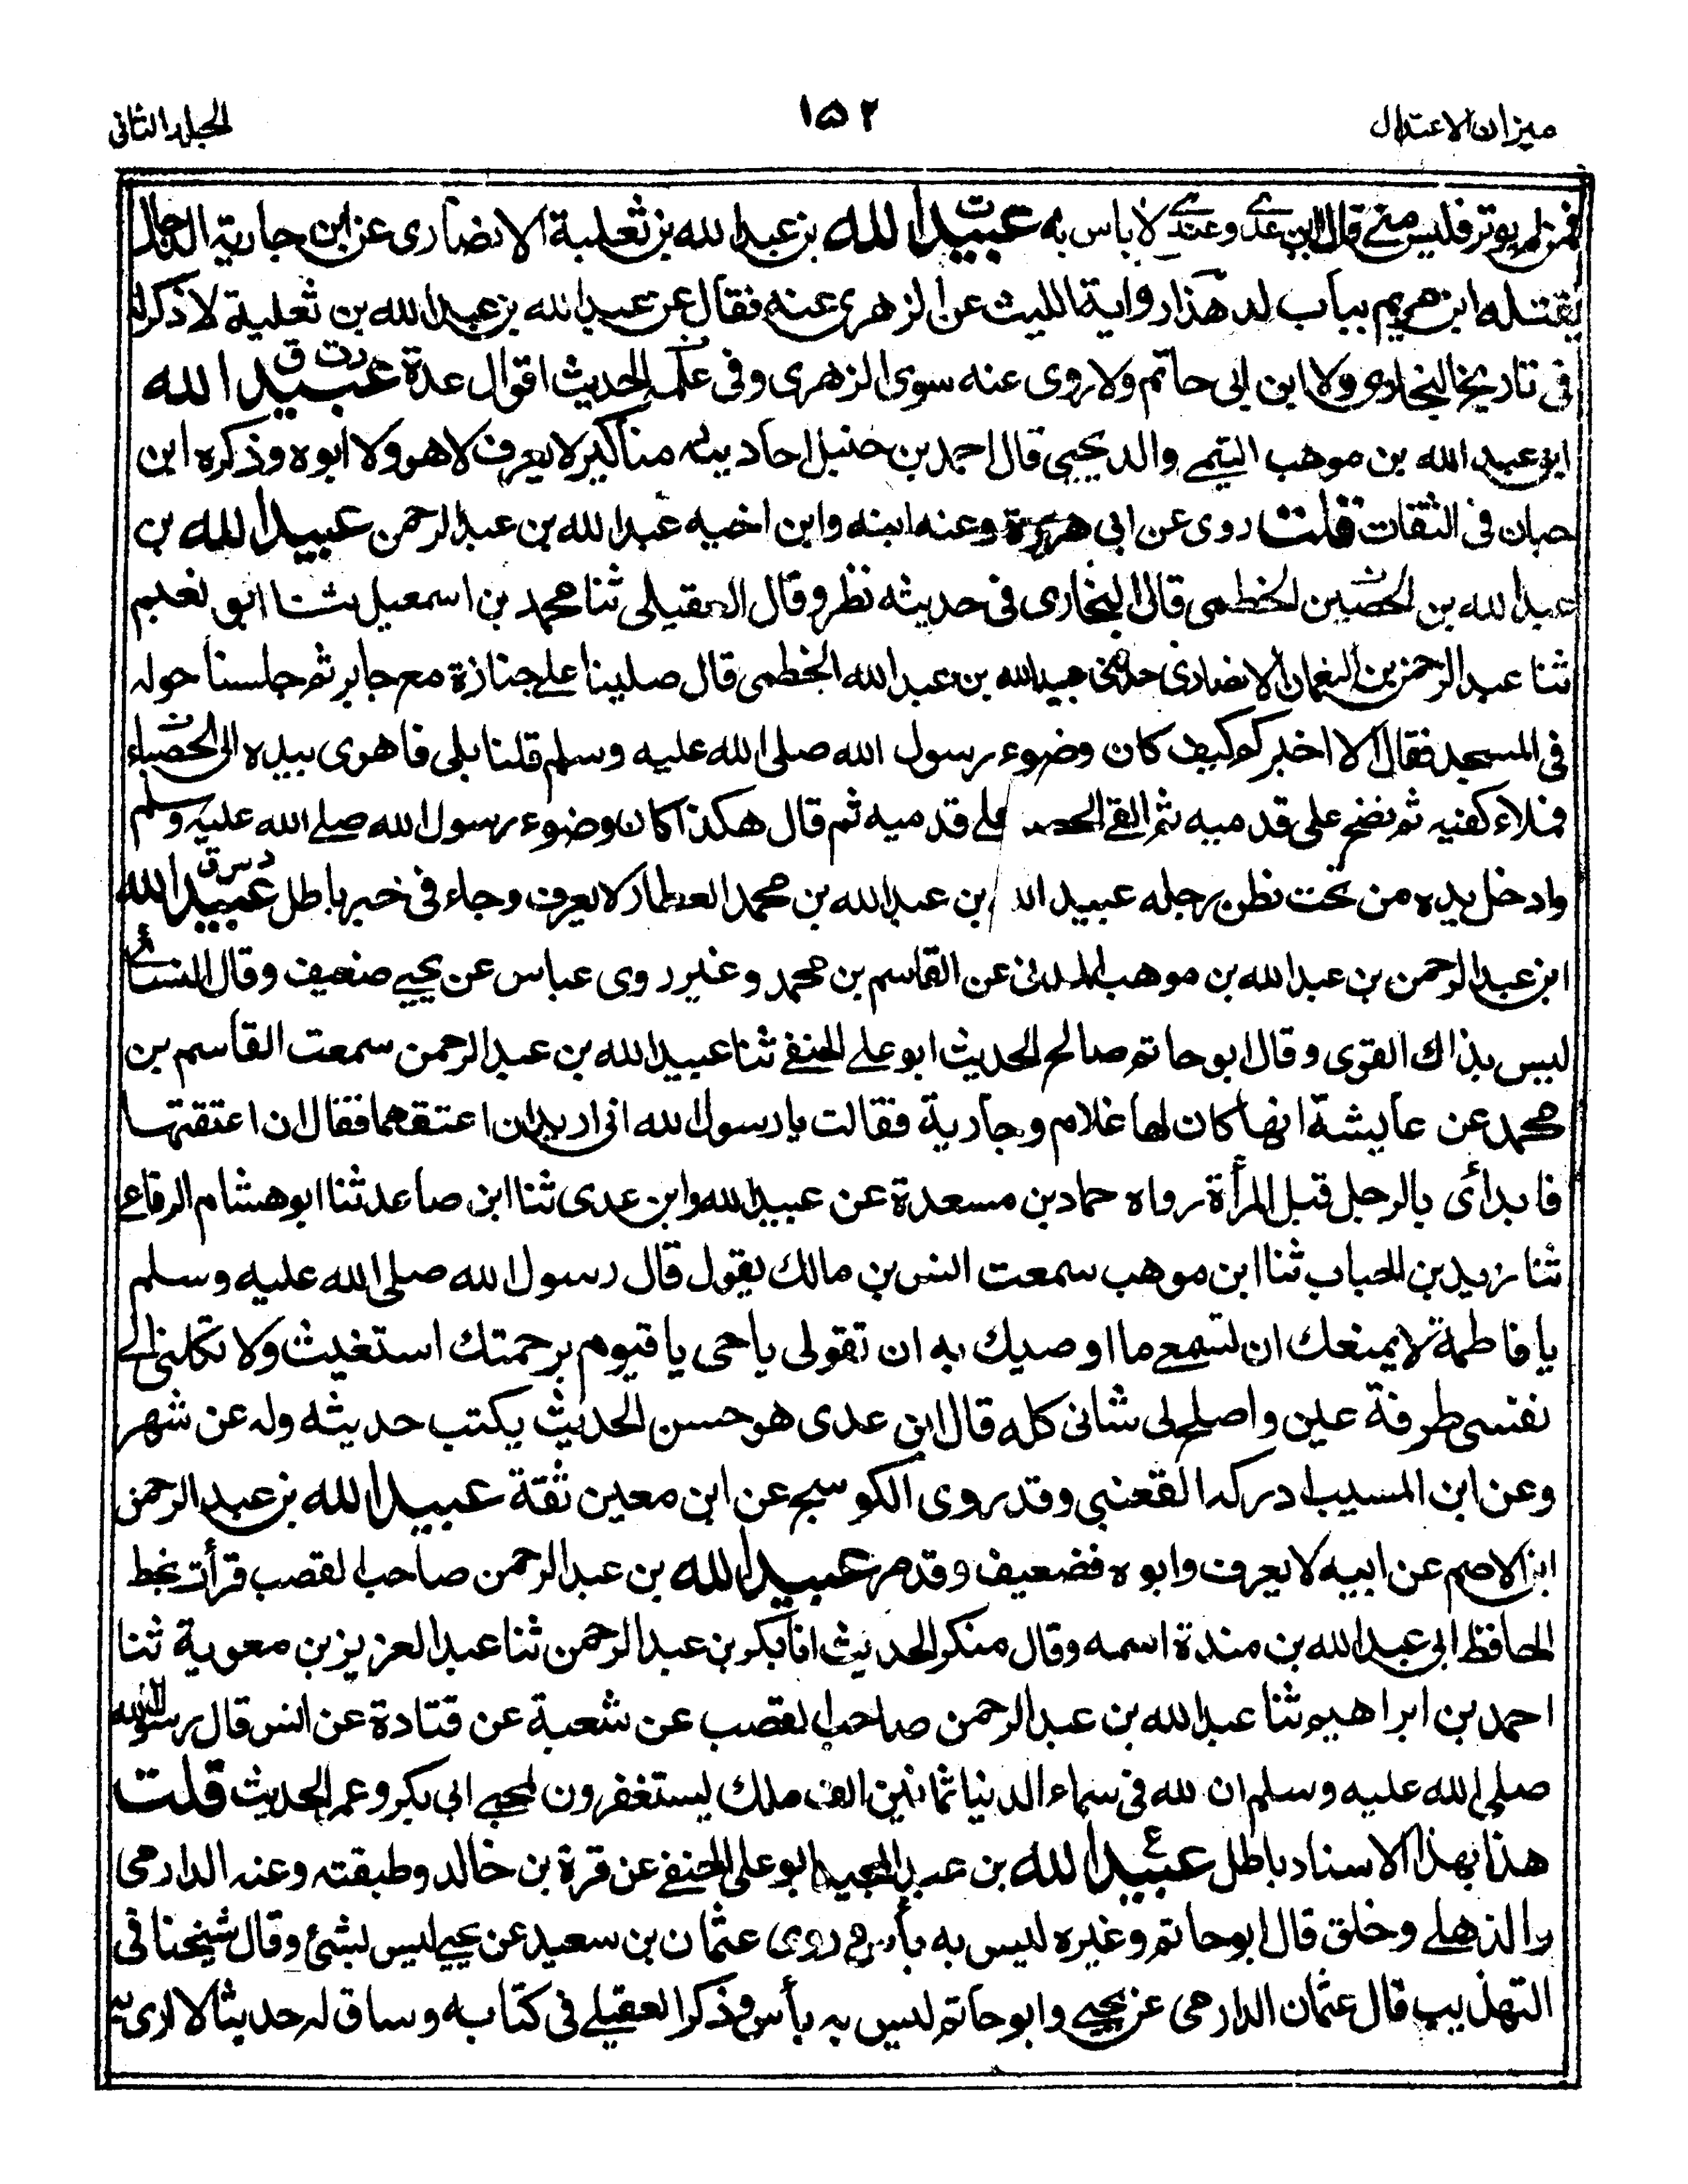 ميزان الاعتدال
١٥٢
الجلد الثاني
فمن لم يوتر فليس مني قال ابن عدي وعندي لا باس به عبيد الله بن عبد الله بن ثعلبة الانصاري عن ابن جارية الدجال
يقتله ابن مريم بباب لد هذا رواية الليث عن الزهري عنه فقال عن عبيد الله بن عبد الله بن ثعلبة لا ذكر له
في تاريخ البخاري ولا ابن ابي حاتم ولا روى عنه سوى الزهري وفي علة الحديث اقوال عدة عبيد الله
ابن عبد الله بن موهب التيمي والد يحيى قال احمد بن حنبل احاديثه مناكير لا يعرف لا هو ولا ابوه وذكره ابن
حبان في الثقات قلت روى عن ابي هريرة وعنه ابنه وابن اخيه عبد الله بن عبد الرحمن عبيد الله بن
عبد الله بن الحصين الخطمي قال البخاري في حديثه نظر وقال العقيلي ثنا محمد بن اسمعيل ثنا ابو نعيم
ثنا عبد الرحمن بن النعمان الانصاري حدثني عبيد الله بن عبد الله الخطمي قال صلينا على جنازة مع جابر ثم جلسنا حوله
في المسجد فقال الا اخبركم كيف كان وضوء رسول الله صلى الله عليه وسلم قلنا بلى فاهوى بيده الى الحصباء
فملاء كفيه ثم نضح على قدميه ثم القى الحصى على قدميه ثم قال هكذا كان وضوء رسول الله صلى الله عليه وسلم
وادخل يده من تحت نطن رجله عبيد الله بن عبد الله بن محمد العطار لا يعرف وجاء في خبر باطل عبيد الله
ابن عبد الرحمن بن عبد الله بن موهب المدني عن القاسم بن محمد وغير روى عباس عن يحيى ضعيف وقال النسائي
ليس بذاك القوى وقال ابو حاتم صالح الحديث ابو علي الحنفي ثنا عبيد الله بن عبد الرحمن سمعت القاسم بن
محمد عن عايشة انها كان لها غلام وجارية فقالت يا رسول الله اني اريد ان اعتقهما فقال ان اعتقتها
فابدائ بالرجل قبل المرأة رواه حماد بن مسعدة عن عبيد الله وابن عدي ثنا ابن صاعد ثنا ابو هشام الرفاعي
ثنا زيد بن الحباب ثنا ابن موهب سمعت انس بن مالك يقول قال رسول الله صلى الله عليه وسلم
يا فاطمة لا يمنعك ان تسمع ما اوصيك به ان تقولي يا حي يا قيوم برحمتك استغيث ولا تكلني الى
نفسي طرفة عين واصلح لي شاني كله قال ابن عدي هو حسن الحديث يكتب حديثه وله عن شهر
وعن ابن المسيب ادركه القعنبي وقد روى الكوسج عن ابن معين ثقة عبيد الله بن عبد الرحمن
ابن الاصم عن ابيه لا يعرف وابوه فضعيف وقد مر عبيد الله بن عبد الرحمن صاحب القصب قرأت بخط
الحافظ ابي عبد الله بن مندة اسمه وقال منكر الحديث انا بكر بن عبد الرحمن ثنا عبد العزيز بن معوية ثنا
احمد بن ابراهيم ثنا عبد الله بن عبد الرحمن صاحب القصب عن شعبة عن قتادة عن انس قال رسول الله
صلى الله عليه وسلم ان لله في سماء الدنيا ثمانين الف ملك يستغفرون لمحبي ابي بكر وعمر الحديث قلت
هذا بهذا الاسناد باطل عبيد الله بن عبد المجيد ابو علي الحنفي عن قرة بن خالد وطبقته وعنه الدارمي
والذهلي وخلق قال ابو حاتم وغيره ليس به بأس روى عثمان بن سعيد عن يحيى ليس بشئ وقال شيخنا في
التهذيب قال عثمان الدارمي عن يحيى وابو حاتم ليس به بأس وذكر العقيلي في كتابه وساق له حديثا لا ارى به